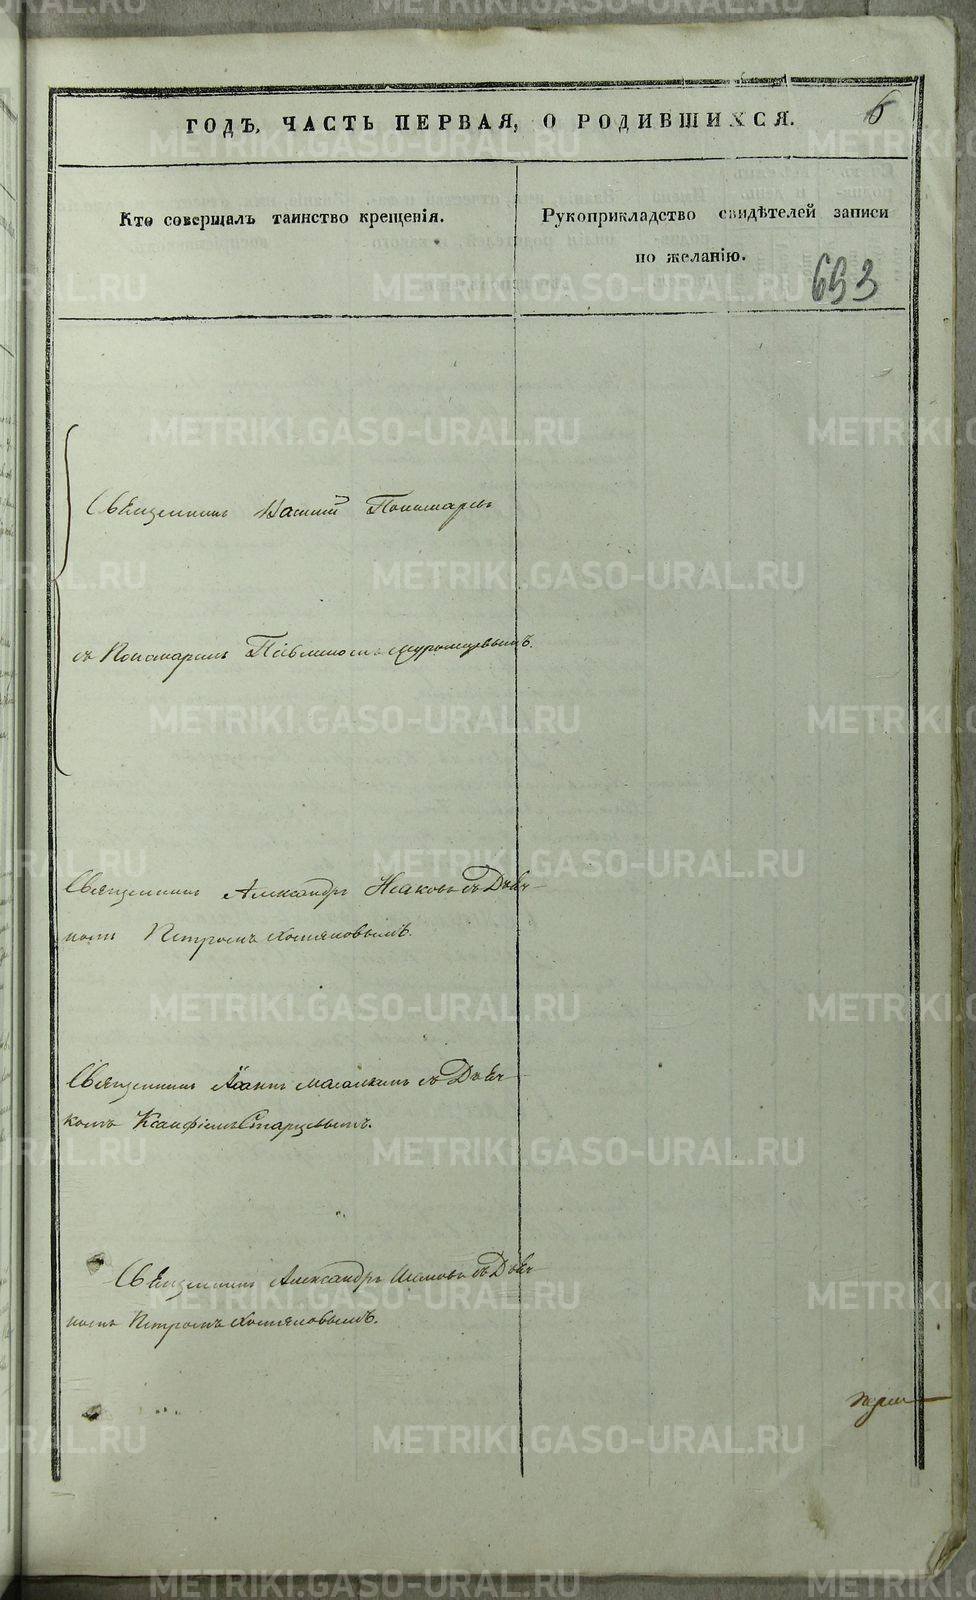 ГОДЪ, ЧАСТЬ ПЕРВАЯ, О РОДИВШИХСЯ.
Кто совершалъ таинство крещенія.
Рукоприкладство свидѣтелей записи
по желанію.
693
Священникъ Василій Пономаревъ
съ Пономаремъ
Священникъ Александръ Исаковъ съ Дьяч-
комъ Петромъ Хомяковымъ.
Священникъ Іоаннъ съ Дьяч-
комъ Старцевымъ.
Священникъ Александръ Исаковъ съ Дьяч-
комъ Петромъ Хомяковымъ.
METRIKI.GASO-URAL.RU